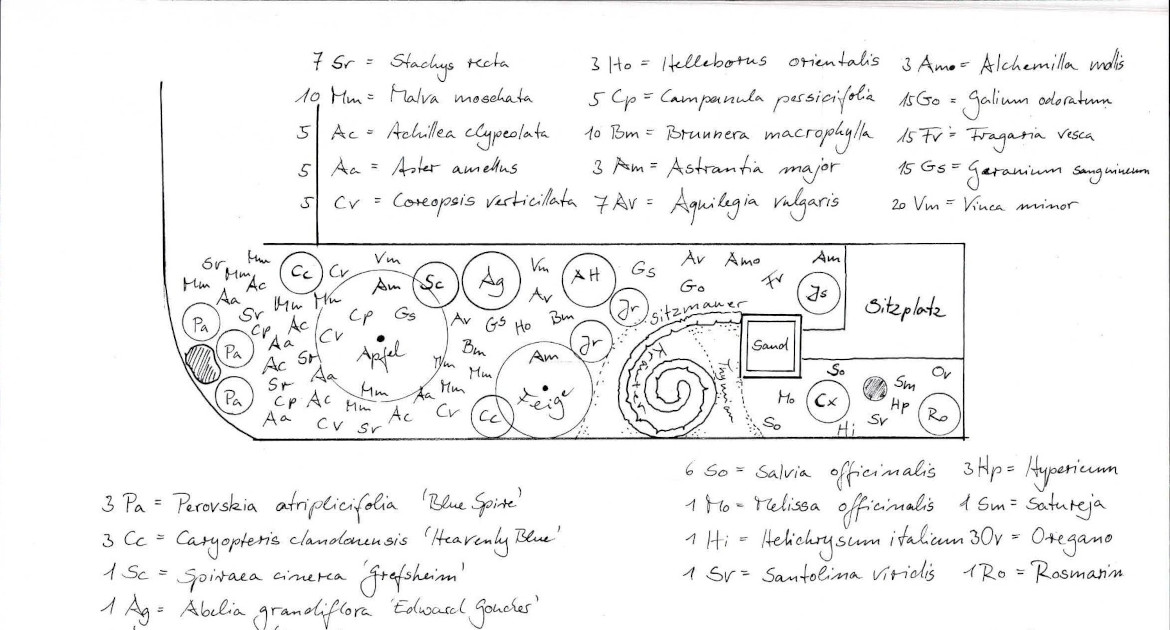 7 Sr = Stachys recta 3 Ho = Helleborus orientalis 3 Amo = Alchemilla mollis
10 Mm = Malva moschata 5 Cp = Campanula persicifolia 15 Go = Galium odoratum
5 Ac = Achillea clypeolata 10 Bm = Brunnera macrophylla 15 Fv = Fragaria vesca
5 Aa = Aster amellus 3 Am = Astrantia major 15 Gs = Geranium sanguineum
5 Cv = Coreopsis verticillata 7 Av = Aquilegia vulgaris 20 Vm = Vinca minor
Sr Mm Mm Mm Ac Cc Cv Vm Am Sc Ag Vm AH Gs Av Amo Am
Aa Sr Mm Mm Cp Gs Av Gs Ho Av Bm Jr Go Fv Js
Sitzmauer Sitzplatz
Pa Cp Ac Aa Cv Apfel Bm Jr Sand
Pa Ac Sr Aa Mm Mm Am Kräuter Thymian So Ov
Pa Sr Cp Ac Mm Mm Aa Mm Feige Mo Cx Sm Hp
Aa Cv Sr Ac Cv Cc So Hi Sv Ro
6 So = Salvia officinalis 3 Hp = Hypericum
1 Mo = Melissa officinalis 1 Sm = Satureja
1 Hi = Helichrysum italicum 3 Ov = Oregano
1 Sv = Santolina viridis 1 Ro = Rosmarin
3 Pa = Perovskia atriplicifolia 'Blue Spire'
3 Cc = Caryopteris clandonensis 'Heavenly Blue'
1 Sc = Spiraea cinerea 'Grefsheim'
1 Ag = Abelia grandiflora 'Edward Goucher'